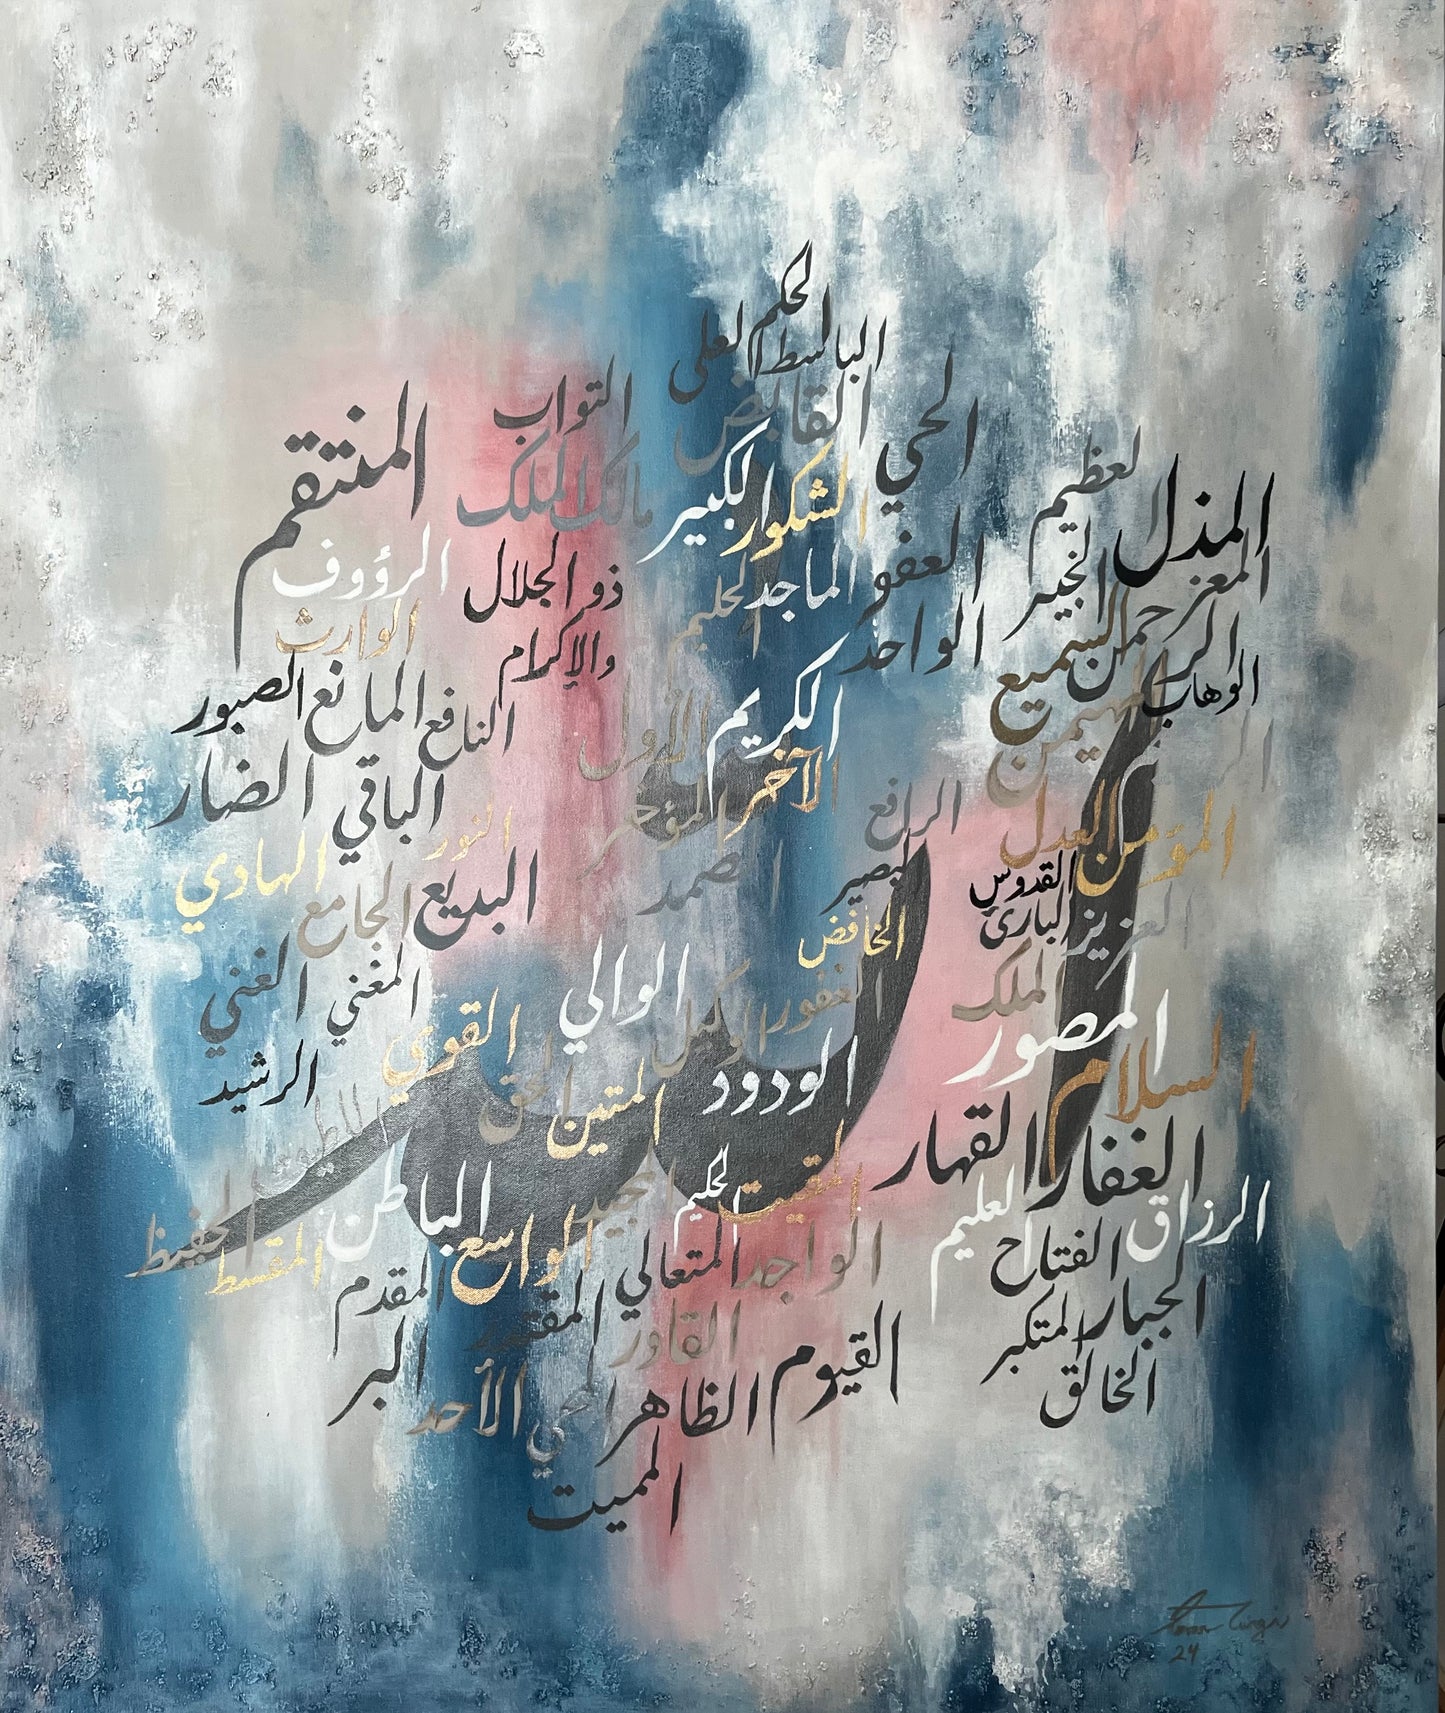 الحكم
العلي
الباسط
القابض
الحي
التواب
المنتقم
مالك الملك
الكبير
الشكور
لعظيم
المذل
المعز
الخبير
العفو
الماجد
الحليم
ذو الجلال
والإكرام
الرؤوف
الوارث
الواحد
السميع
الرحمن
الوهاب
المهيمن
الكريم
الأول
الآخر
المؤخر
الصمد
الصبور
المانع
النافع
الضار
الباقي
النور
الهادي
الجامع
البديع
الرافع
البصير
الخافض
العدل
المؤمن
القدوس
البارئ
العزيز
الملك
المصور
السلام
الغفور
الوكيل
الوالي
الغني
المغني
القوي
الرشيد
الحق
المتين
الودود
القهار
الغفار
المقيت
الحكيم
الباطن
الواسع
الحفيظ
المقسط
المقدم
المتعالي
الواجد
العليم
الرزاق
الفتاح
الجبار
المتكبر
الخالق
المقتدر
القادر
القيوم
الظاهر
البر
الأحد
المميت
24